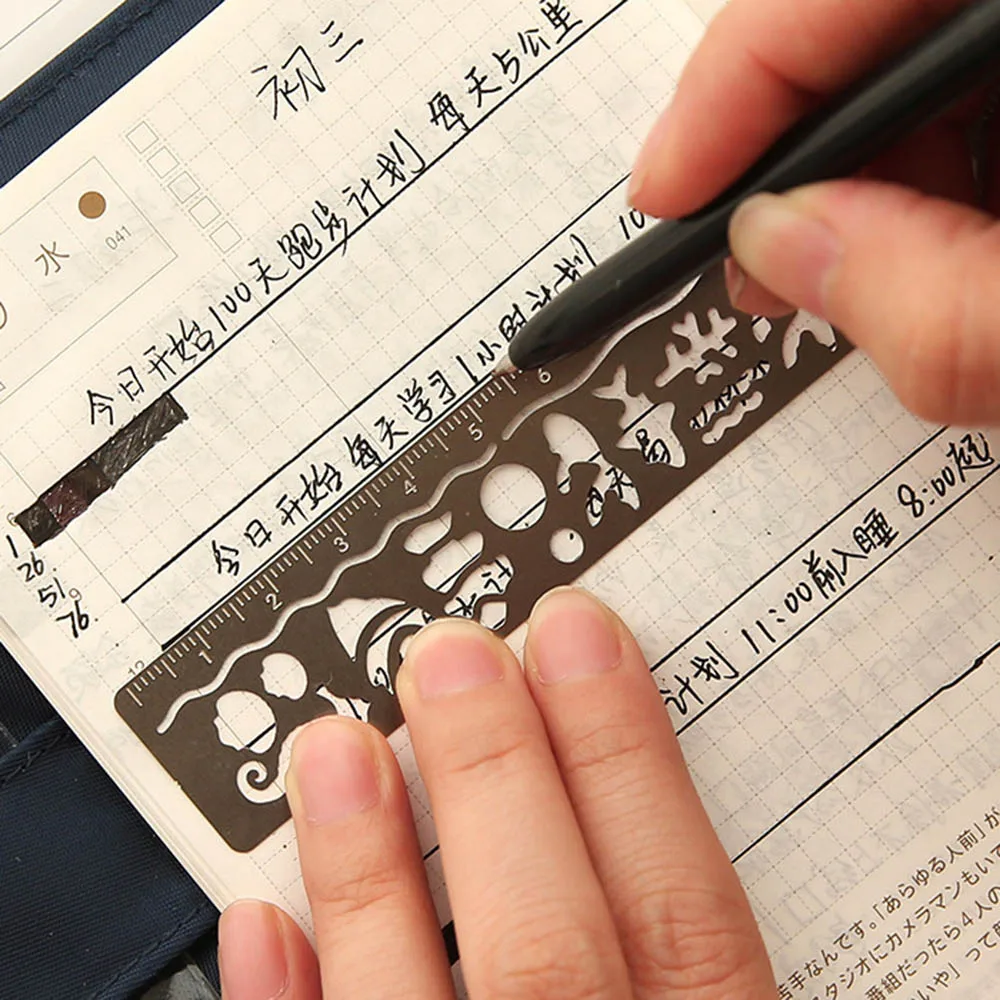 初三
水
041
今日开始100天跑步计划 每天5公里
今日开始每天学习1小时计划 10
1
26
51
76
9
12
1 2 3 4 5 6
计划 11:00前入睡 8:00起
「あらゆる人前」が
苦手なんです。
タジオにカメラマンもいて
番組だったら4人の
いや」って